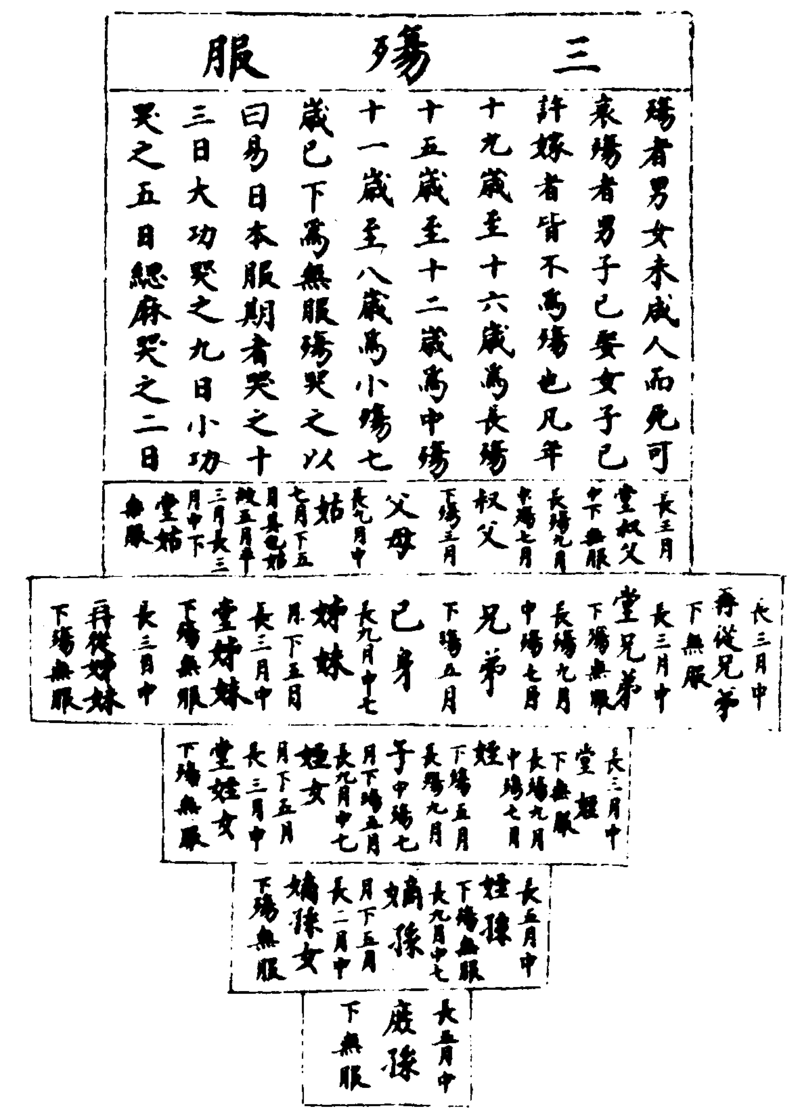 三殤服
殤者男女未成人而死可
哀殤者男子已娶女子已
許嫁者皆不爲殤也凡年
十九歲至十六歲爲長殤
十五歲至十二歲爲中殤
十一歲至八歲爲小殤七
歲已下爲無服殤哭之以
日易日本服期者哭之十
三日大功哭之九日小功
哭之五日緦麻哭之二日
長三月
堂叔父
中下無服
長殤九月
中殤七月
叔父
下殤三月
父母
長九月中
姑
七月下五
月其也姑
三月長三
月中下
堂姑
無服
長三月中
再從兄弟
下無服
長三月中
堂兄弟
下殤無服
長殤九月
中殤七月
兄弟
下殤五月
己身
長九月中七
姊妹
月下五月
長三月中
堂姊妹
下殤無服
長三月中
再從姊妹
下殤無服
長三月中
堂姪
下無服
長殤九月
中殤七月
姪
下殤五月
長殤九月
子中殤七
月下殤五月
長九月中七
姪女
月下五月
長三月中
堂姪女
下殤無服
長五月中
姪孫
下殤無服
長九月中七
嫡孫
月下五月
長二月中
嫡孫女
下殤無服
長五月中
庶孫
下無服